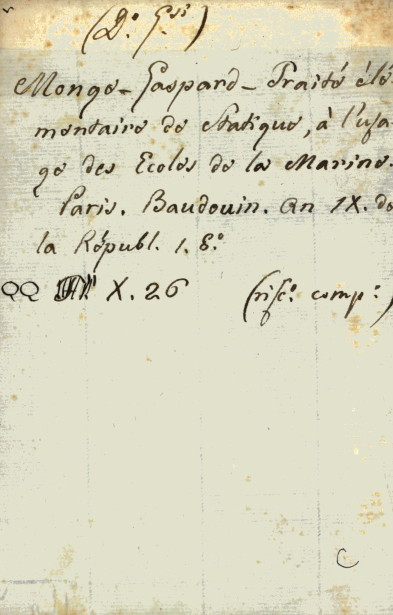 (D.º G.si)
Monge - Gaspard - Traité élé-
mentaire de Statique, à l'usa-
ge des Ecoles de la Marine.
Paris. Baudouin. An IX. de
la Républ. 1. 8.º
QQ X. 26 (risc.º comp.º)
C